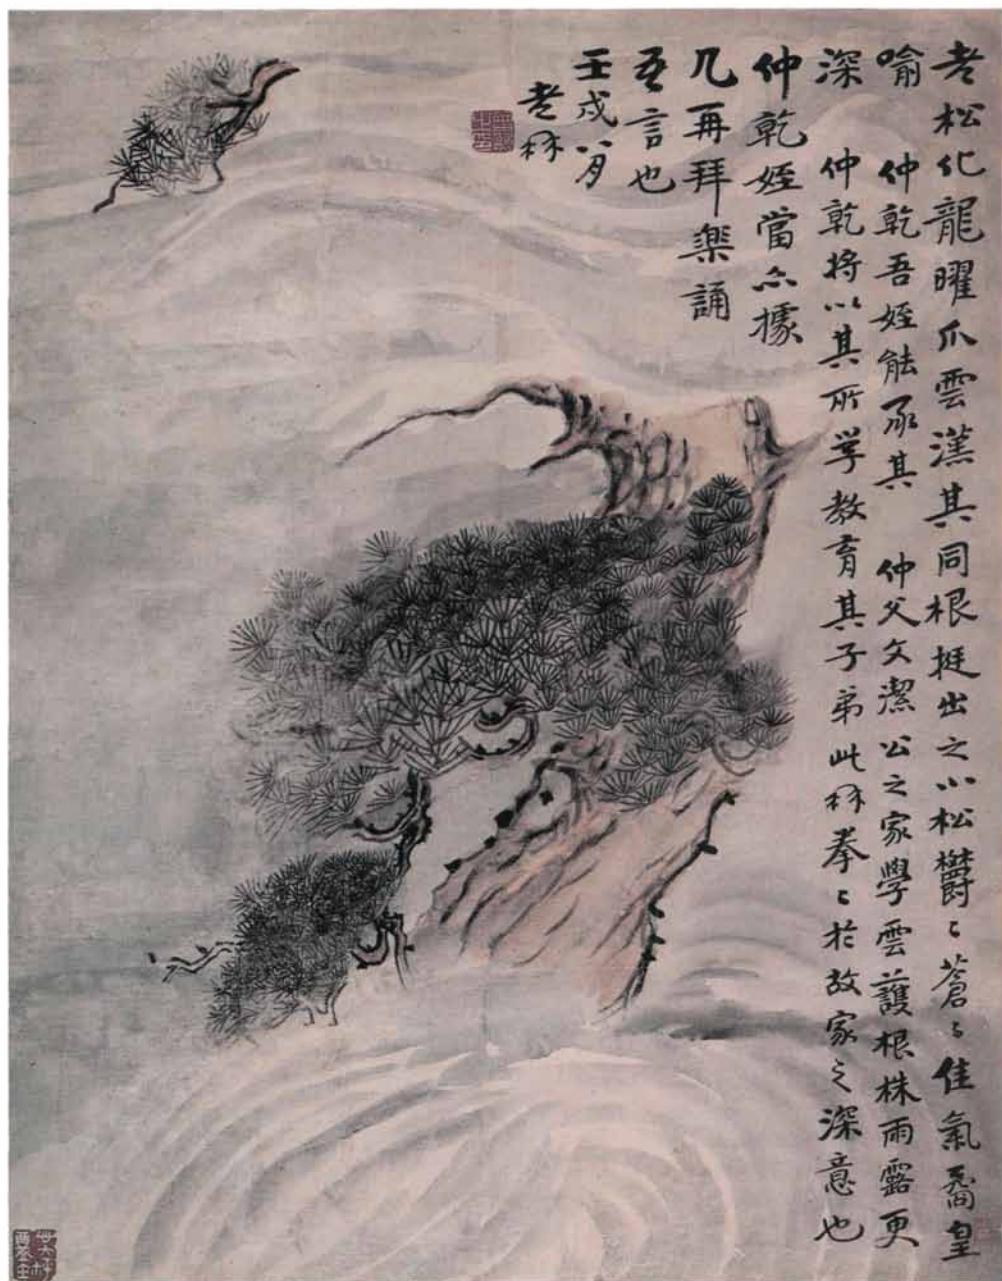 老松化龍曜爪雲漢其同根挺出之小松欝〻蒼〻佳氣矞皇
喻 仲乾吾姪能承其 仲父文潔公之家學雲護根株雨露更
深 仲乾將以其所学教育其子弟此秝拳〻於故家之深意也
仲乾姪當亦據
几再拜樂誦
吾言也
壬戌八月
老秝